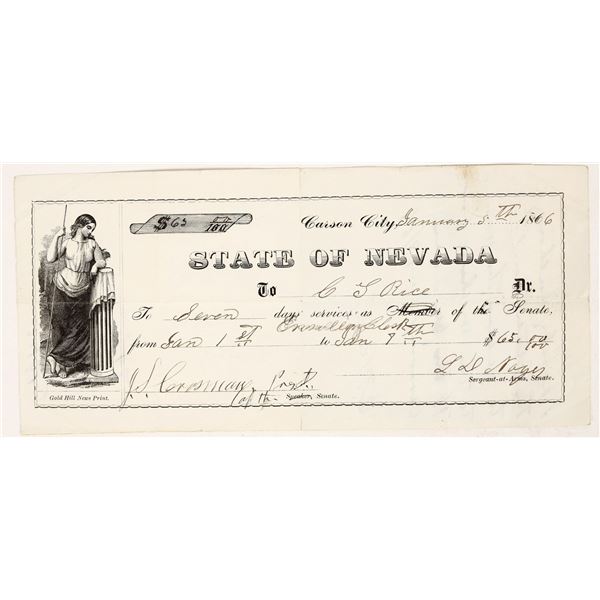 $65 00/100
Carson City, January 8th 1866
STATE OF NEVADA
To C S Rice Dr.
To Seven days services as Member of the Senate,
Enrolling Clerk
from Jan 1st to Jan 7th $65.00/100
J. S. Crosman Prest. L D Noyes
of the Speaker, Senate. Sergeant-at-Arms, Senate.
Gold Hill News Print.